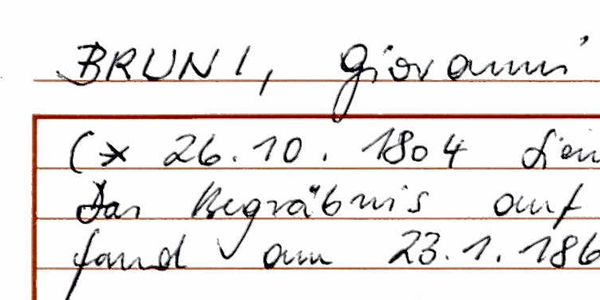 BRUNI, Giovanni
(* 26.10.1804
Das Begräbnis auf
fand am 23.1.186